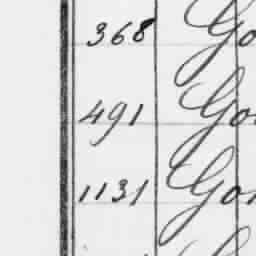 368 Go
491 Go
1131 Gor